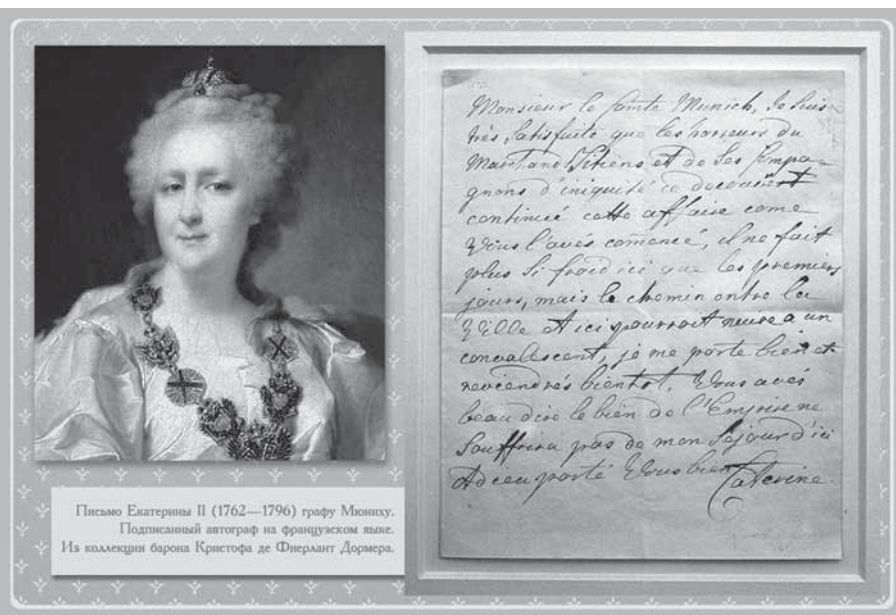 Monsieur le Comte Munich, Je suis
très satisfaite que les horreurs du
Marchand et de ses Compa-
gnons d'iniquité ce decouvrent
continué cette affaire come
Vous l'avés comencé, il ne fait
plus si froid ici que les premiers
jours, mais le chemin entre la
Ville et ici pourroit nuire a un
convalescent, je me porte bien et
reviendrés bientot, Vous avés
beau dire le bien de l'Empire ne
souffrira pas de mon sejour d'ici
Adieu porté Vous bien Caterine.
Письмо Екатерины II (1762—1796) графу Мюниху.
Подписанный автограф на французском языке.
Из коллекции барона Кристофа де Фиерлант Дормера.